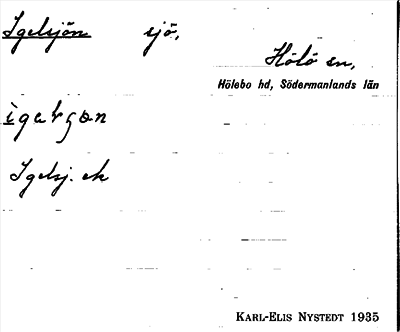 Igelsjön sjö,
Hölö sn,
Hölebo hd, Södermanlands län
Igelsj. ek
KARL-ELIS NYSTEDT 1935